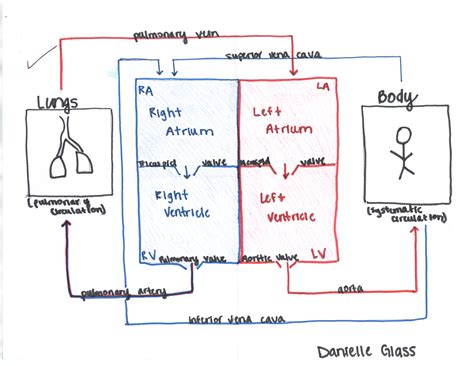 pulmonary vein
superior vena cava
RA
LA
Lungs
Body
Right
Atrium
Left
Atrium
Tricuspid valve
Bicuspid valve
(pulmonary
circulation)
(systematic
circulation)
Right
Ventricle
Left
Ventricle
RV
Pulmonary valve
Aoritic valve
LV
pulmonary artery
aorta
inferior vena cava
Danielle Glass